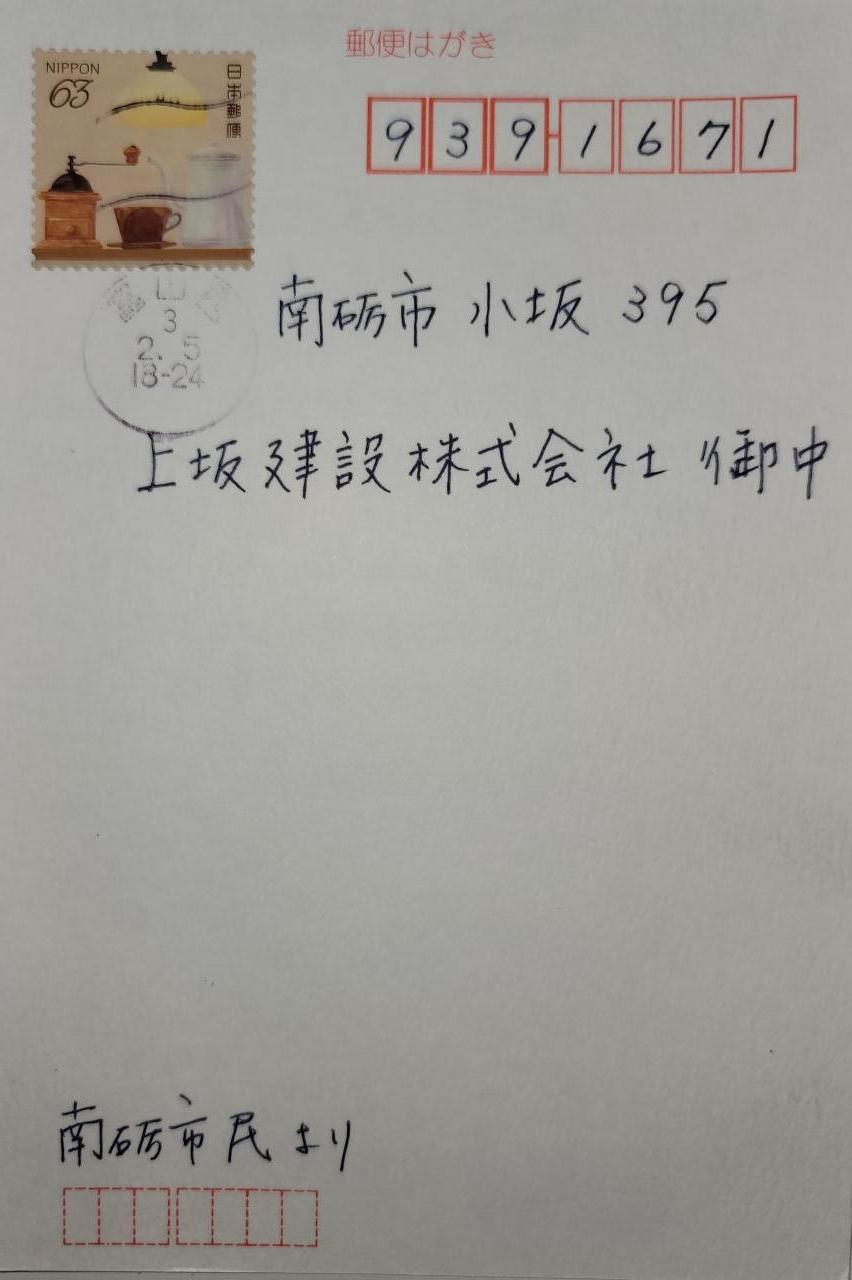 郵便はがき
NIPPON
63
日本郵便
939-1671
3
2. 5
18-24
南砺市 小坂 395
上坂建設株式会社 御中
南砺市民より